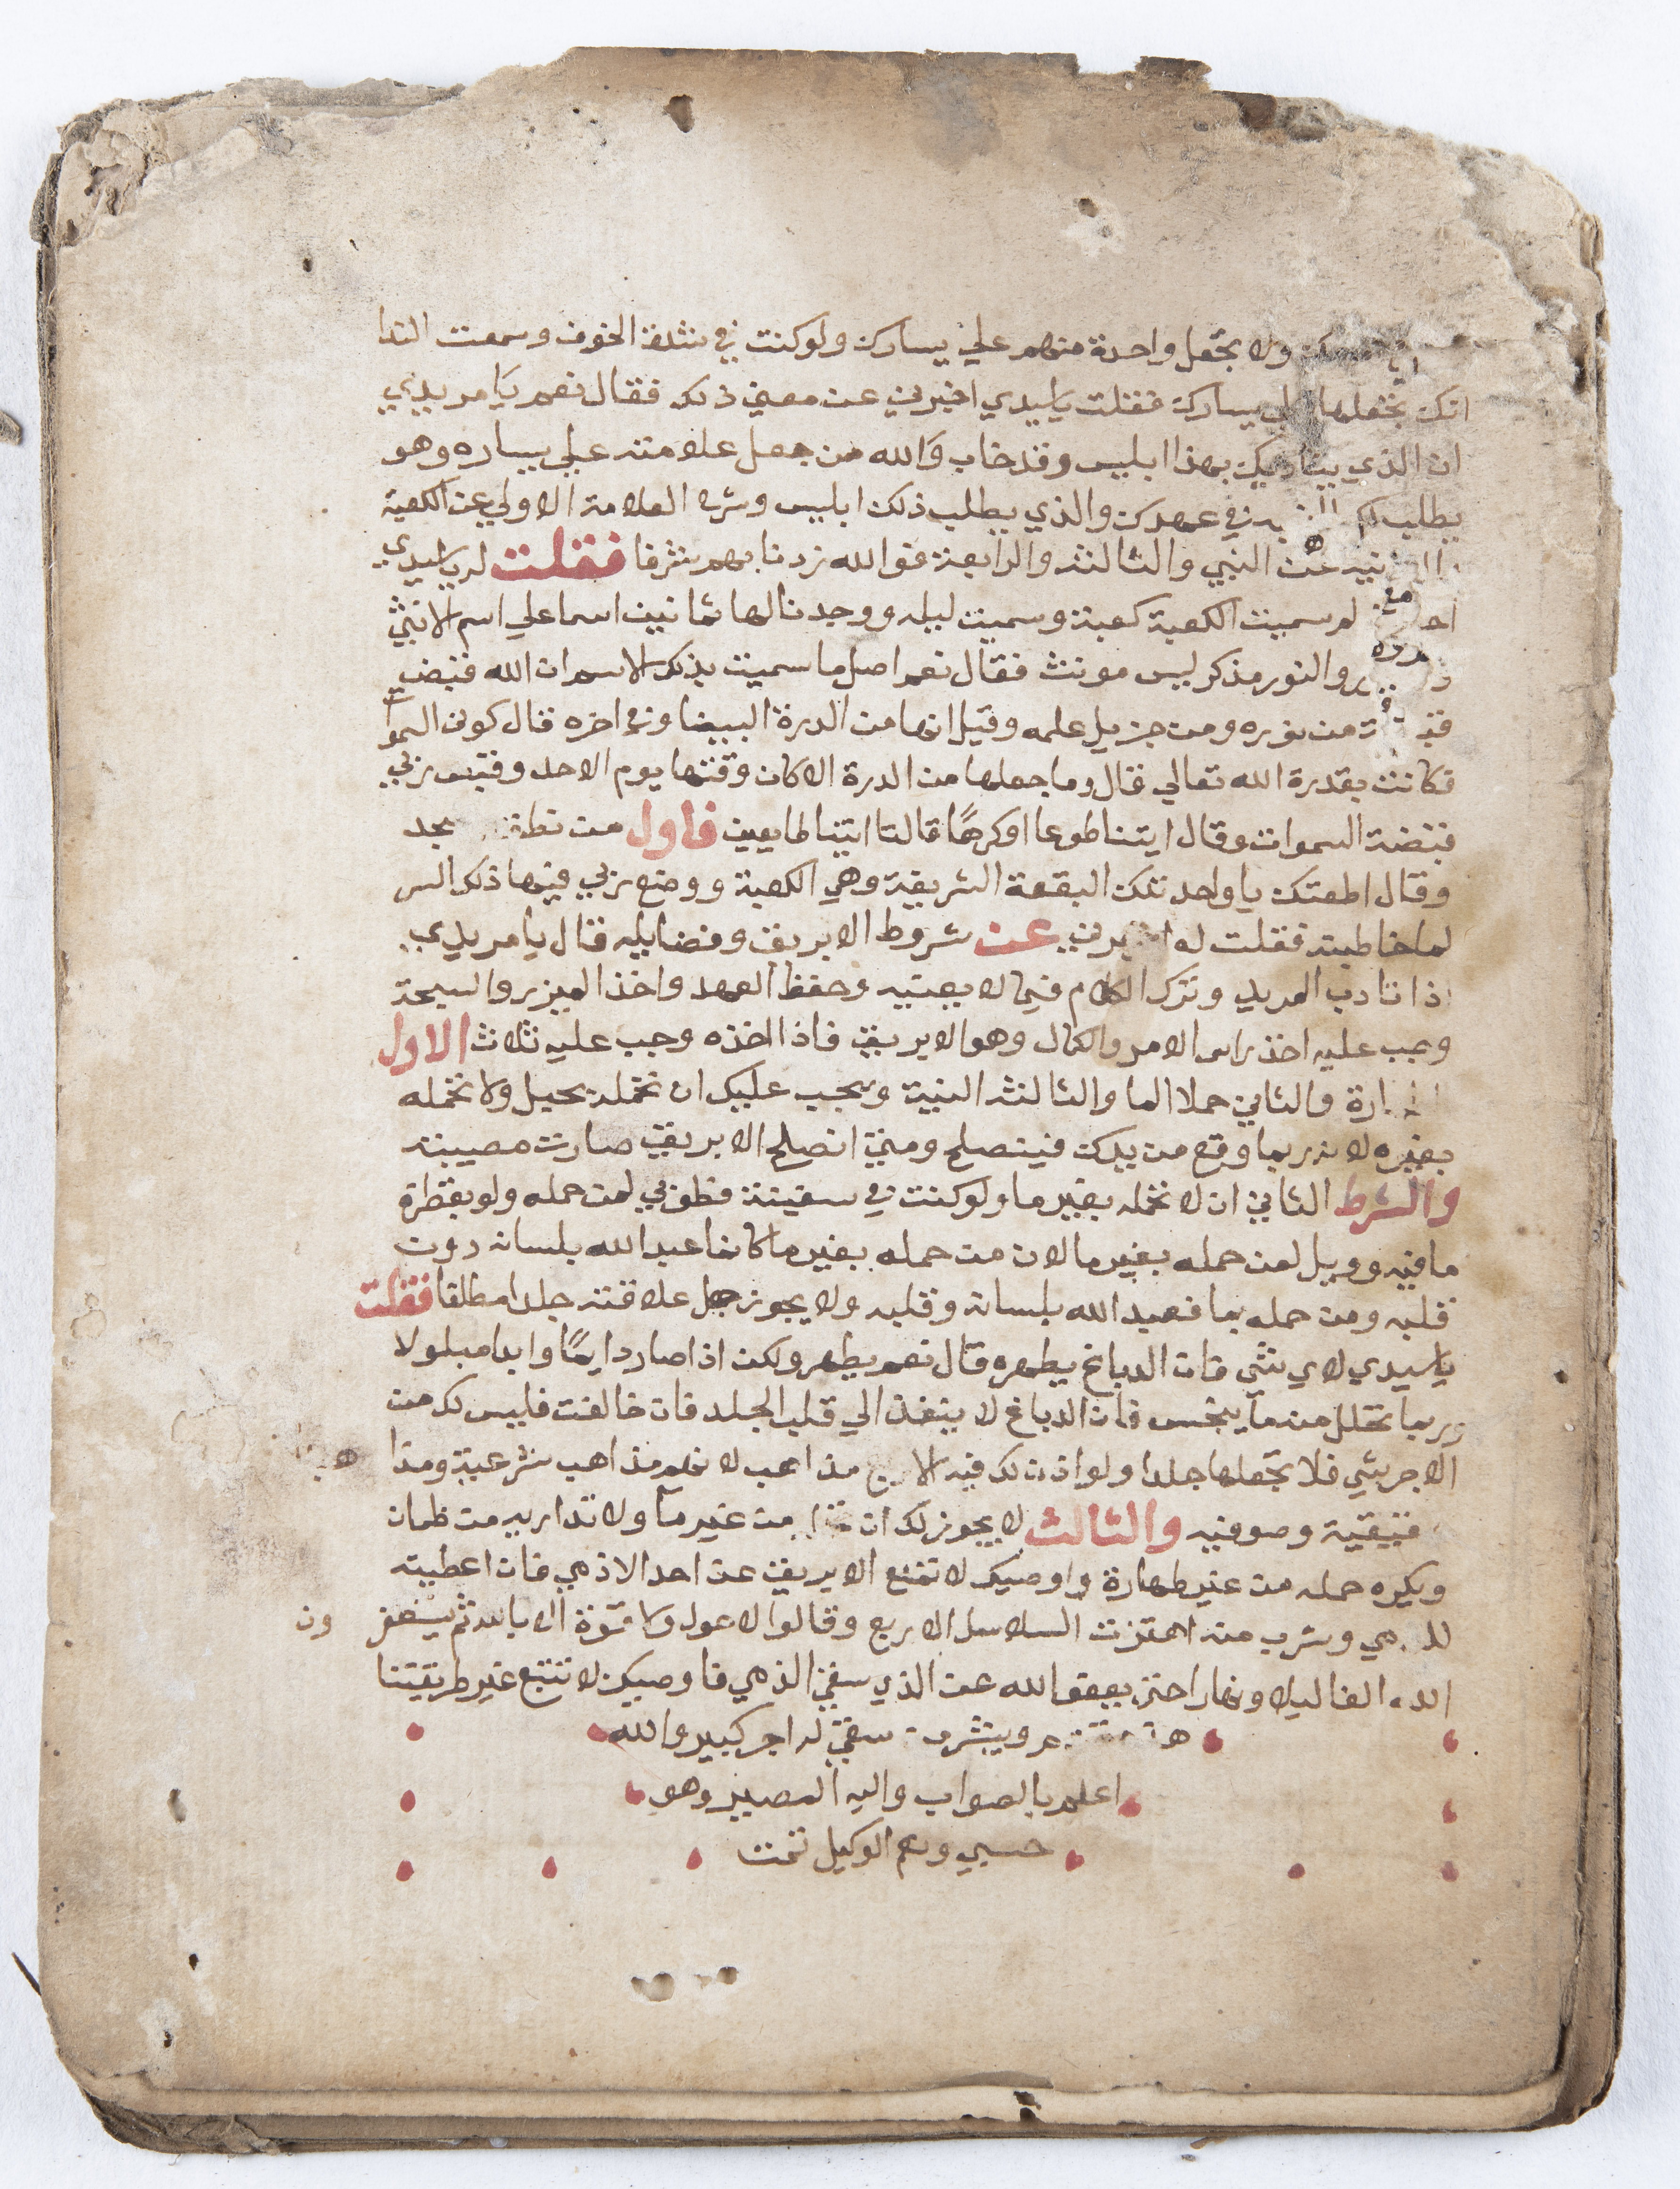 ولا تجعل واحدة منهم علي يسارك ولو كنت في شدة الخوف وسمعت الندا
انك تجعلها علي يسارك فقلت ياسيدي اخبرني عن معني ذلك فقال نعم يا مريدي
ان الذي يناديك بهذا ابليس وقد خاب والله من جعل علامته علي يساره وهو
يطلب لكم في عهدك والذي يطلب ذلك ابليس وشره العلامة الاولي عن الكعبة
عن النبي والثالثه والرابعة فوالله زدنا بهم شرفا فقلت له ياسيدي
لم سميت الكعبة كعبة وسميت ليله ووجدنا لها ثمانين اسما علي اسم الانثي
والنور مذكر ليس مونث فقال نعم اصل ما سميت بذلك الاسم ان الله قبض
من نوره ومن جزيل علمه وقيل انها من الدرة البيضا وفي اخره قال كوني السموات
فكانت بقدرة الله تعالي قال وما جعلها من الدرة الا كان وقتها يوم الاحد وقبض ربي
قبضة السموات وقال ايتنا طوعا او كرها قالتا اتينا طايعين فاول من نطق بحد
وقال اطعتك يا واحد تلك البقعة الشريفة وهي الكعبة ووضع ربي فيها ذلك السر
لما خاطبته فقلت له اخبرني عن شروط الابريق وفضايله قال يا مريدي
اذا تادب المريد وترك الكلام فيما لا يعنيه وحفظ العهد واخذ الميزر والسبحة
وجب عليه اخذ راس الامر والكمال وهو الابريق فاذا اخذه وجب عليه ثلاث الاول
والثاني حملا الما والثالثه النية ويجب عليك ان تحمله بحيل ولا تحمله
بغيره لانه ربما وقع من يدك فينصلح ومتي انصلح الابريق صارت مصيبته
والشرط الثاني ان لا تحمله بغير ما ولو كنت في سفينة فطوبي لمن حمله ولو بقطرة
ما فيه وويل لمن حمله بغير ما لان من حمله بغير ما كانما عبد الله بلسانه دون
قلبه ومن حمله بما فعبد الله بلسانه وقلبه ولا يجوز جعل علاقته جلدا مطلقا فقلت
ياسيدي لاي شي فان الدباغ يطهره قال نعم يطهر ولكن اذا صار دايما وابدا مبلولا
وربما تحلل منه ما ينجس فان الدباغ لا ينفذ الي قلب الجلد فان خالفت فليس لك من
الاجر شي فلا تجعلها جلدا ولو اذن لك فيه الاربع مذاهب لانهم مذاهب شرعية ومذا
وصوفيه والثالث لا يجوز لك ان من غير ما ولا تداريه من ظمان
ويكره حمله من غير طهارة واوصيك لا تمنع الابريق عن احد الاذمي فان اعطيته
وشرب منه اهتزت السلاسل الاربع وقالوا لا حول ولا قوة الا بالله ثم يستغفر
ون
الله الفا ليلا ونهارا حتي يعفو الله عن الذي سقي الذمي فاوصيك لا تتبع غير طريقتنا
سقي له اجر كبير والله
اعلم بالصواب واليه المصير وهو
حسبي ونعم الوكيل تمت